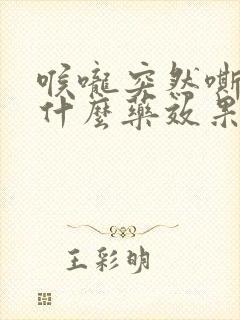 喉嚨突然嘶
什麼藥效果
王彩明